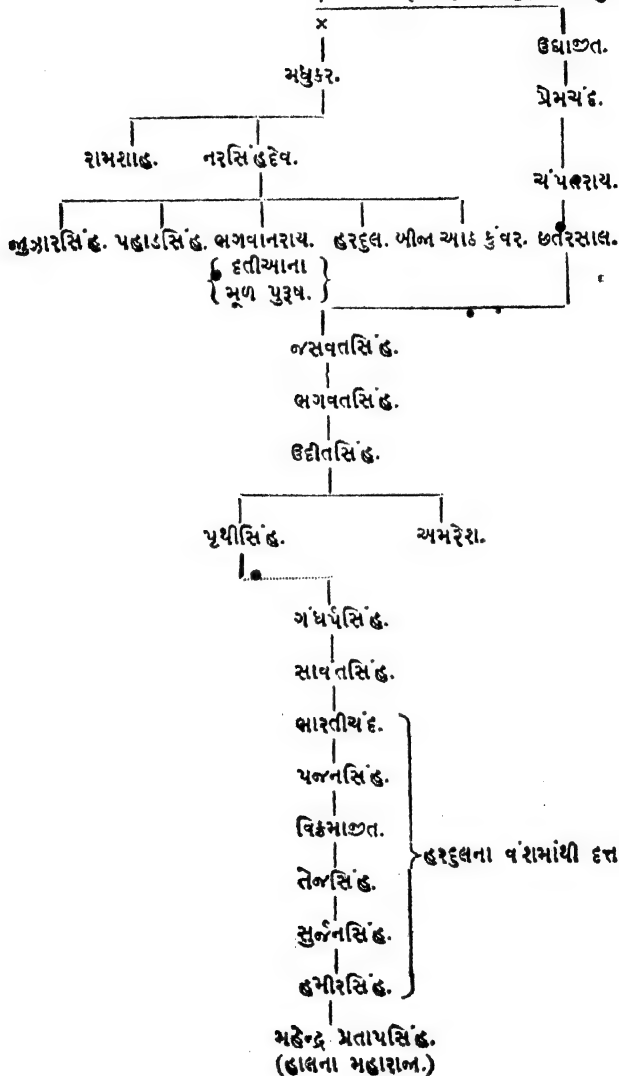 ઉદ્યાજીત.
મધુકર.
પ્રેમચંદ.
રામશાહ. નરસિંહદેવ.
ચંપતરાય.
જુઝારસિંહ. પહાડસિંહ. ભગવાનરાય. હરદુલ. બીજા આઠ કુંવર. છતરસાલ.
{ દતીઆના }
{ મૂળ પુરૂષ. }
જસવતસિંહ.
ભગવતસિંહ.
ઉદીતસિંહ.
પૃથીસિંહ. અમરેશ.
ગંધર્પસિંહ.
સાવંતસિંહ.
ભારતીચંદ.
પજનસિંહ.
વિક્રમાજીત.
હરદુલના વંશમાંથી દત્ત
તેજસિંહ.
સુર્જનસિંહ.
હમીરસિંહ.
મહેન્દ્ર પ્રતાપસિંહ.
(હાલના મહારાજા.)